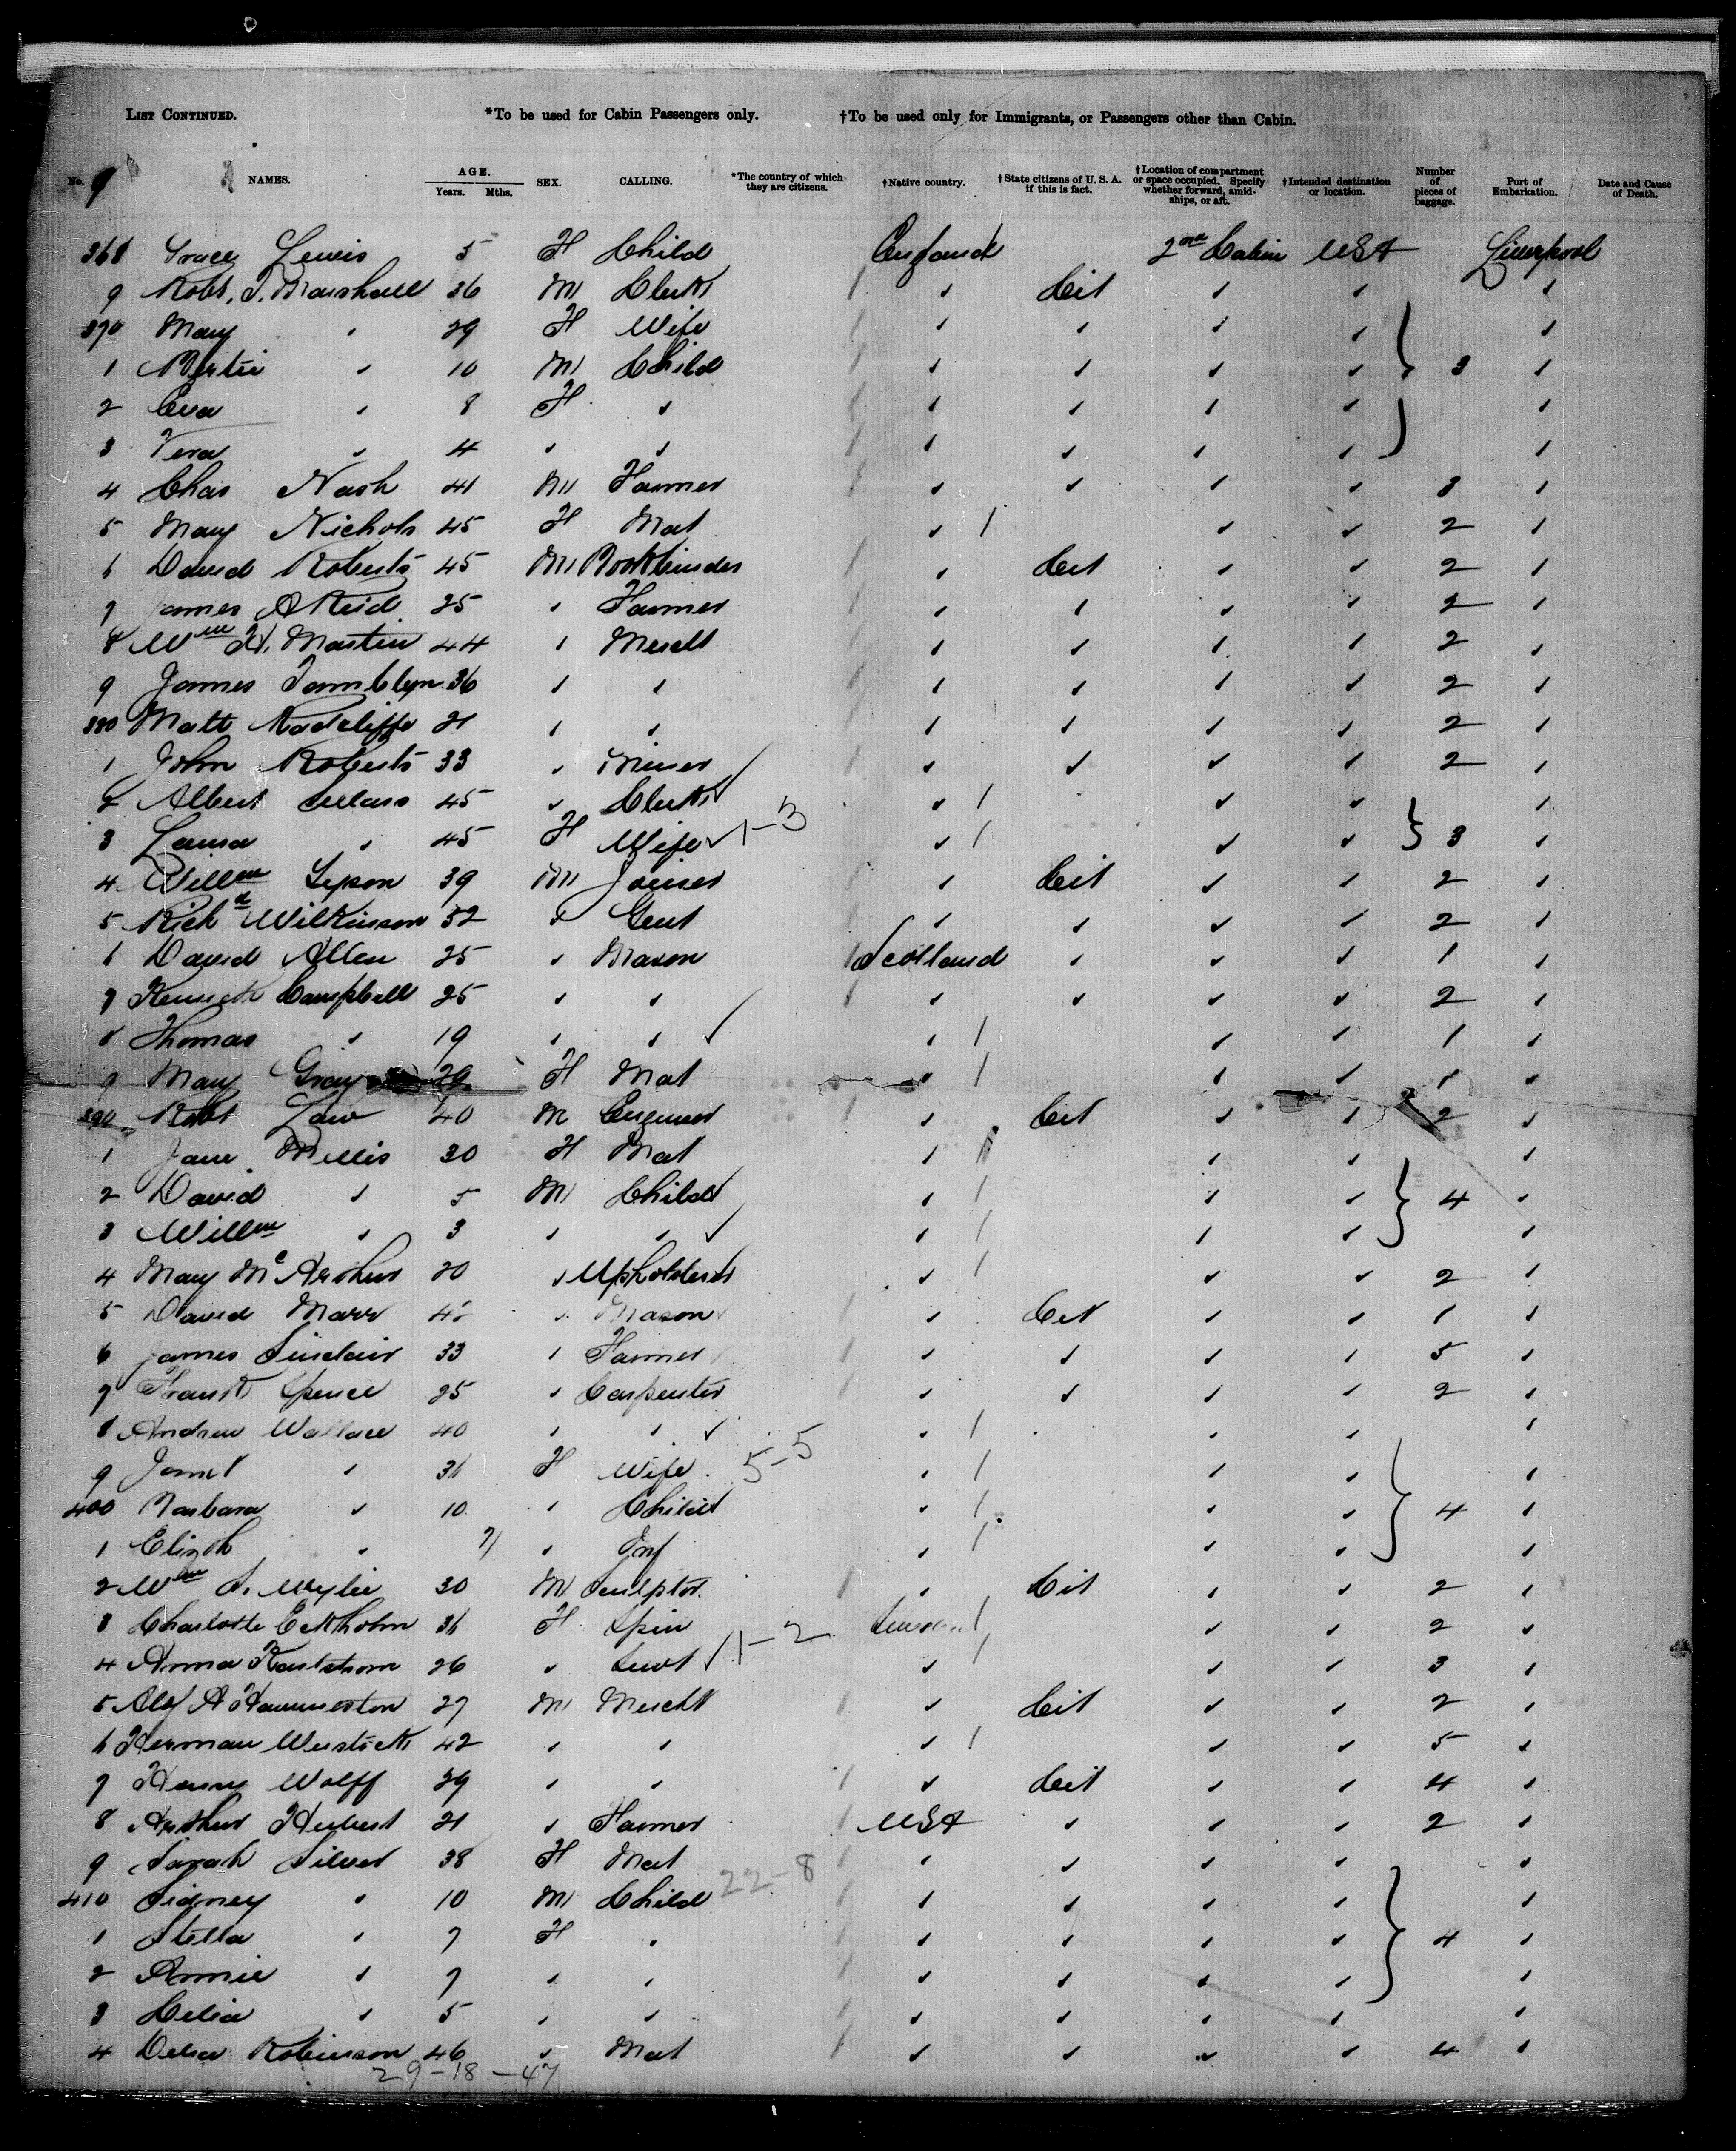 LIST CONTINUED. *To be used for Cabin Passengers only. †To be used only for Immigrants, or Passengers other than Cabin.
No. NAMES. AGE. Years. Mths. SEX. CALLING. *The country of which they are citizens. †Native country. †State citizens of U. S. A. if this is fact. †Location of compartment or space occupied. Specify whether forward, amidships, or aft. †Intended destination or location. Number of pieces of baggage. Port of Embarkation. Date and Cause of Death.
9
368 Grace Lewis 5 F Child England 2nd Cabin USA Liverpool
9 Robt. J. Marshall 36 M Clerk ✓ Cit ✓ ✓ ✓
370 Mary ✓ 29 F Wife ✓ ✓ ✓ ✓ ✓
1 Bertie ✓ 10 M Child ✓ ✓ ✓ ✓ 3 ✓
2 Eva ✓ 8 F ✓ ✓ ✓ ✓ ✓ ✓
3 Vera ✓ 4 ✓ ✓ ✓ ✓ ✓ ✓ ✓
4 Chas Nash 41 M Farmer ✓ ✓ ✓ ✓ 3 ✓
5 Mary Nichols 45 F Mat ✓ / ✓ ✓ 2 ✓
6 David Roberts 45 M Bookbinder ✓ Cit ✓ ✓ 2 ✓
7 James A Reid 25 ✓ Farmer ✓ ✓ ✓ ✓ 2 ✓
8 Wm H. Martin 44 ✓ Mercht ✓ ✓ ✓ ✓ 2 ✓
9 James Tamblyn 36 ✓ ✓ ✓ ✓ ✓ ✓ 2 ✓
380 Matt Radcliffe 21 ✓ ✓ ✓ ✓ ✓ ✓ 2 ✓
1 John Roberts 33 ✓ Miner ✓ ✓ ✓ ✓ 2 ✓
2 Albert 45 ✓ Clerk ✓ / ✓ ✓ ✓
3 Laura ✓ 45 F Wife ✓ 1-3 ✓ / ✓ ✓ 3 ✓
4 Willm 39 M Joiner ✓ Cit ✓ ✓ 2 ✓
5 Richd Wilkinson 52 ✓ Gent ✓ ✓ ✓ ✓ 2 ✓
6 David Allen 25 ✓ Mason Scotland ✓ ✓ ✓ 1 ✓
7 Kenneth Campbell 25 ✓ ✓ ✓ ✓ ✓ ✓ 2 ✓
8 Thomas ✓ 19 ✓ ✓ ✓ ✓ / ✓ ✓ 1 ✓
9 Mary Gray 29 F Mat ✓ / ✓ ✓ 1 ✓
390 Robt Law 40 M Engineer ✓ Cit ✓ ✓ 2 ✓
1 Jane Mellis 30 F Mat ✓ / ✓ ✓ ✓
2 David ✓ 5 M Child ✓ ✓ / ✓ ✓ 4 ✓
3 Willm ✓ 3 ✓ ✓ ✓ ✓ / ✓ ✓ ✓
4 Mary McArthur 20 ✓ Upholsterer ✓ / ✓ ✓ 2 ✓
5 David Marr ✓ Mason ✓ Cit ✓ ✓ 1 ✓
6 James Sinclair 33 ✓ Farmer ✓ ✓ ✓ ✓ 5 ✓
7 Frank Spence 25 ✓ Carpenter ✓ ✓ ✓ ✓ 2 ✓
8 Andrew Wallace 40 ✓ ✓ ✓ ✓ / ✓ ✓ ✓
9 Janet ✓ 31 F Wife 5-5 ✓ / ✓ ✓ ✓
400 Barbara ✓ 10 ✓ Child ✓ / ✓ ✓ 4 ✓
1 Elizth ✓ 7/ ✓ Inf ✓ / ✓ ✓ ✓
2 Wm S. Wylie 30 M Sculptor ✓ Cit ✓ ✓ 2 ✓
3 Charlotte Eckholm 31 F Spin Sweden / ✓ ✓ 2 ✓
4 Anna 26 ✓ Servt ✓ 1-2 ✓ / ✓ ✓ 3 ✓
5 27 M Mercht ✓ Cit ✓ ✓ 2 ✓
6 Herman 42 ✓ ✓ ✓ / ✓ ✓ 5 ✓
7 Henry Wolff 29 ✓ ✓ ✓ Cit ✓ ✓ 4 ✓
8 Arthur Hubert 21 ✓ Farmer USA ✓ ✓ ✓ 2 ✓
9 Sarah Silver 38 F Mat ✓ ✓ ✓ ✓ ✓
410 Sidney ✓ 10 M Child 22-8 ✓ ✓ ✓ ✓ ✓
1 Stella ✓ 7 F ✓ ✓ ✓ ✓ ✓ 4 ✓
2 Annie ✓ 7 ✓ ✓ ✓ ✓ ✓ ✓ ✓
3 Celia ✓ 5 ✓ ✓ ✓ ✓ ✓ ✓ ✓
4 Delia Robinson 46 ✓ Mat ✓ ✓ ✓ ✓ 4 ✓
29-18-47